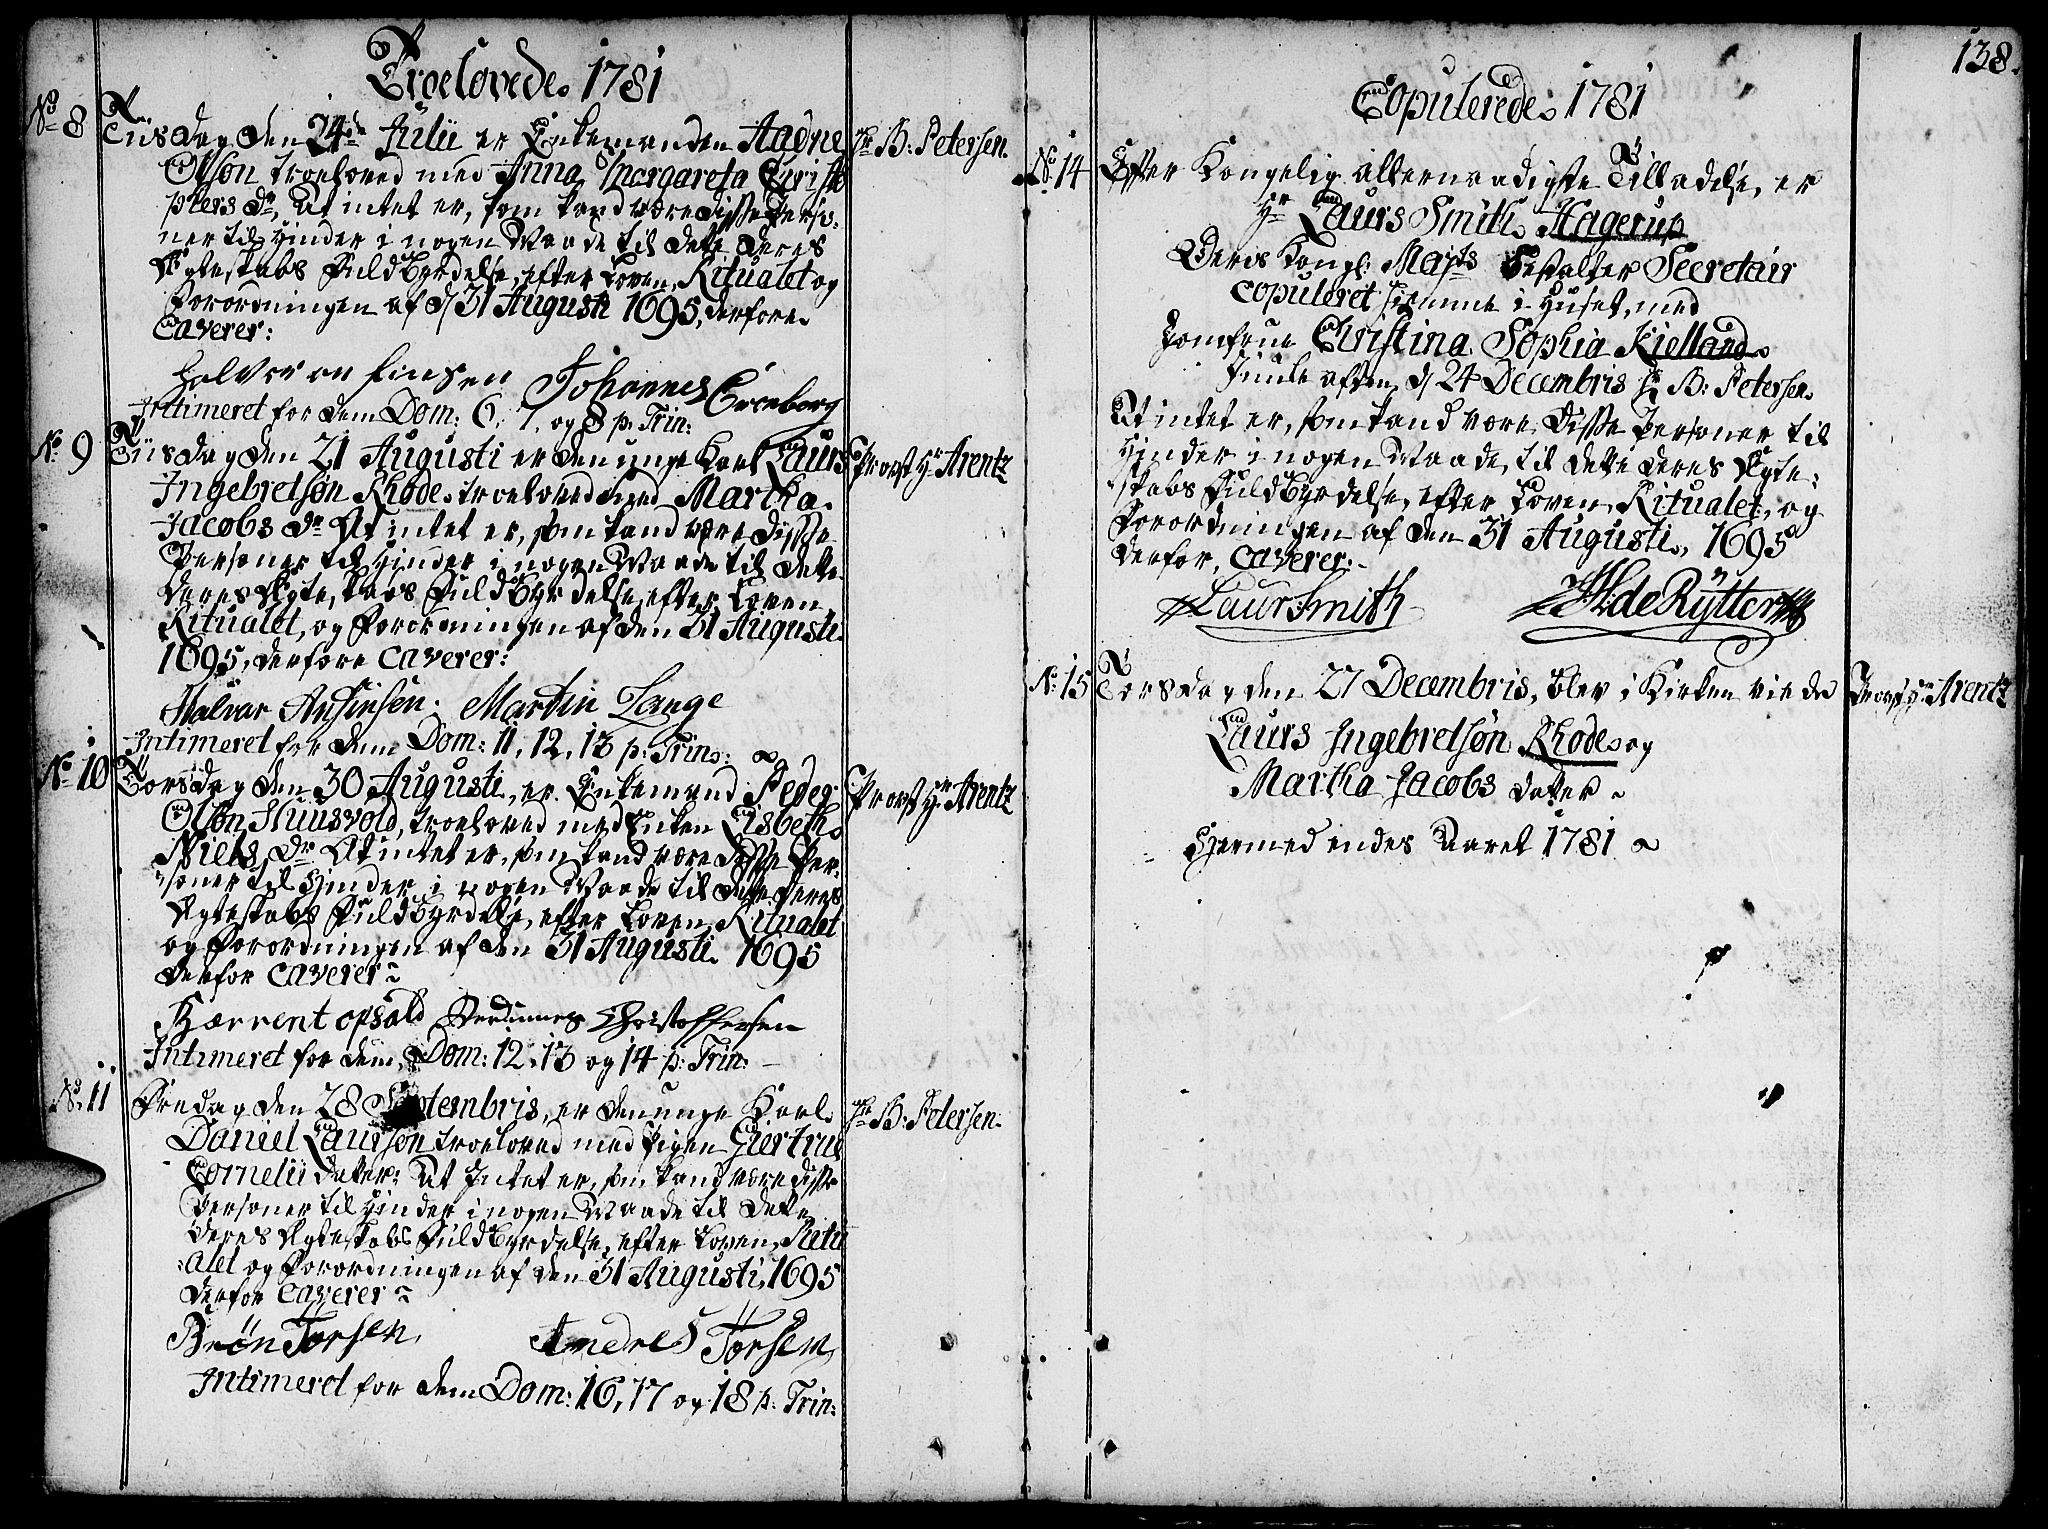 Troelovede 1781
No 8 Tiisdag den 24de Julii er Enkemanden Aadne Hr B: Petersen.
Olsøn troeloved med Anna Margareta Christo
phers Dr, At intet er, som kand være disse Perso-
ner til Hinder i nogen Maade til dette deres
Ægteskabs Fuldbyrdelse, efter Loven, Ritualet og
Forordningen af d 31 Augusti 1695, derfore
Caverer:
Halvor Johannes
Intimeret for dem Dom: 6, 7, og 8 p. Trin:
No 9 Tiisdag den 21 Augusti er den unge Karl Laurs Provst Hr Arentz
Ingebretsøn Rhode troeloved med Martha
Jacobs Dr At intet er, som kand være disse
Personer til Hinder i nogen Maade til dette
deres Ægteskabs Fuldbyrdelse, efter Loven,
Ritualet, og Forordningen af den 31 Augusti
1695, derfore Caverer:
Halvar Ansinsen. Martin Lange
Intimeret for dem Dom: 11, 12, 13 p: Trin:
No 10 Torsdag den 30 Augusti, er Enkemand Peder Provst Hr Arentz
Olsøn Huusvold, troeloved med Enken Lisbeth
Niels Dr At intet er, som kand være disse Per-
soner til Hinder i nogen Maade til dette deres
Ægteskabs Fuldbyrdelse, efter Loven, Ritualet
og Forordningen af den 31 Augusti 1695
derfor Caverer
Opsald Christoffersen
Intimeret for dem Dom: 12, 13 og 14 p: Trin:
No. 11 Fredag den 28 Septembris, er den unge Karl Hr B: Petersen.
Daniel Laursøn troeloved med Pigen Giertrud
Cornelii Dater: At Intet er, som kand være disse
Personer til Hinder i nogen Maade til dette
deres Ægteskabs Fuldbyrdelse, efter Loven, Ritu
alet og Forordningen af den 31 Augusti, 1695
derfor Caverer
Biøn Torsen Andres Torsen
Intimeret for dem Dom: 16, 17 og 18 p: Trin:
138.
Copulerede 1781
No 14 Efter Kongelig allernaadigste Tilladelse, er
Hr Laurs Smith Hagerup
Deris Kongl: Majts Bestalter Secretair
Copuleret hiemme i Huset, med
Jomfrue Christina Sophia Kielland
Juule aften, d 24 Decembris Hr B: Petersen.
At intet er, som kand være disse Personer til
Hinder i nogen Maade, til dette deres Ægte-
skabs Fuldbyrdelse, efter Loven, Ritualet, og
Forordningen af den 31 Augusti, 1695
derfor, Caverer:
Laur Smith de Rytter
No 15 Torsdag den 27 Decembris, blev i Kirken viede Provst Hr Arentz
Laurs Ingebretsøn Rhode og
Martha Jacobs Dater
Hermed endes Aaret 1781